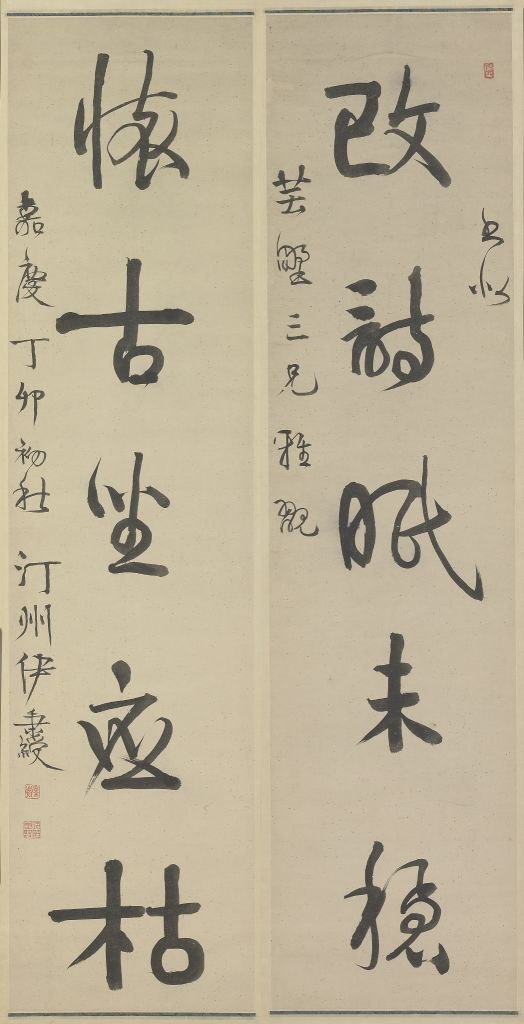 書似
改詩眠未穩
芸墅三兄雅翫
懷古坐應枯
嘉慶丁卯初秋 汀州伊秉綬